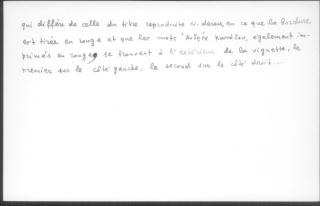 qui diffère de celle du titre reproduite ci-dessus, en ce que la bordure
est tirée en rouge et que les mots Ἀνδρέα également im-
primés en rouge, se trouvent à l'extérieur de la vignette, le
premier sur le côté gauche, le second sur le côté droit...